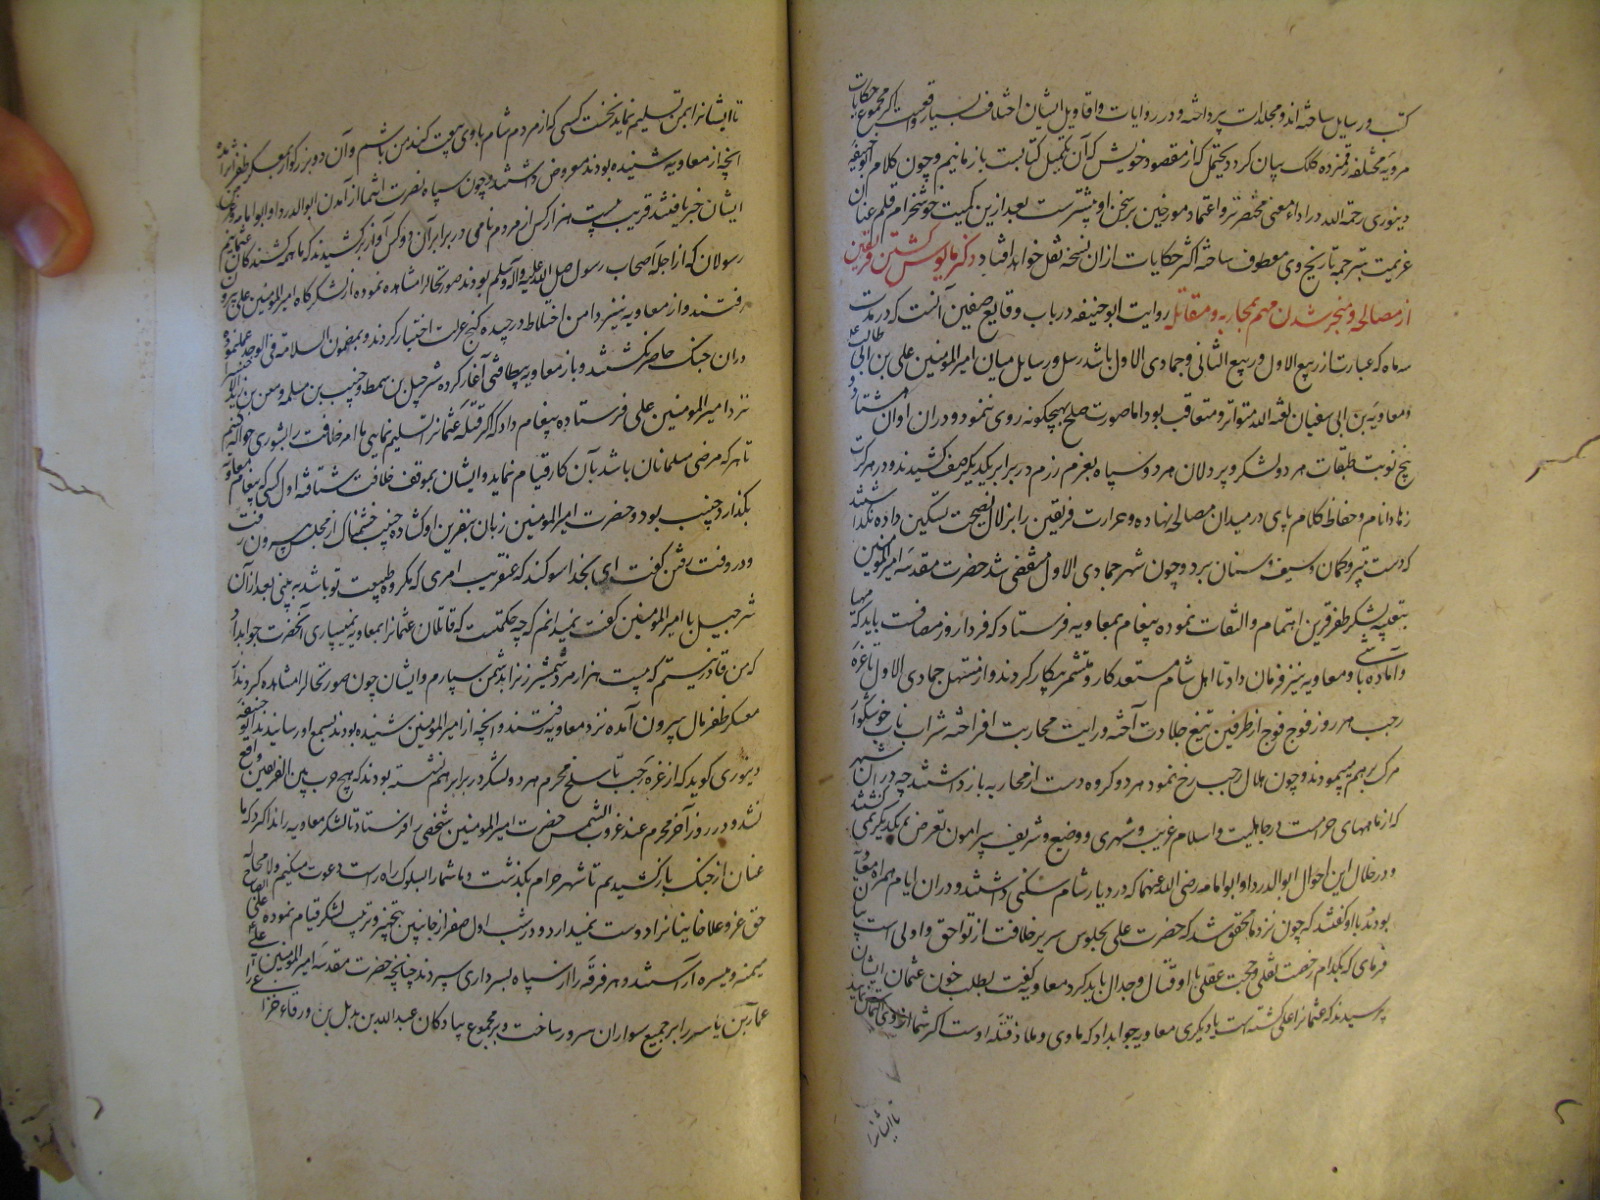 کتب و رسایل ساخته اند و مجلدات پرداخته و در روایات و اقاویل ایشان اختلاف بسیار واقعست اکر مجموع حکایات
مرویه مختلفه رقمزده کلک بیان کردد یحتمل که از مقصود خویش که آن تکمیل کتابست باز مانیم و چون کلام ابو حنیفه
دینوری رحمة الله در اداء معنی مختصرتر و اعتماد مورخین بر سخن او بیشترست بعد ازین کمیت خوشخرام قلم عنان
عزیمت بترجمه تاریخ وی معطوف ساخته اکثر حکایات ازان نسخه نقل خواهد افتاد ذکر مایوس کشتن فریقین
از مصالحه و منجر شدن مهم بمحاربه و مقاتله روایت ابو حنیفه در باب وقایع صفین آنست که در مدت
سه ماه که عبارتست از ربیع الاول و ربیع الثانی و جمادی الاول باشد رسل و رسایل میان امیر المومنین علی بن ابی طالب
و معاویة بن ابی سفیان لعنه الله متواتر و متعاقب بود اما صورت صلح بهیچکونه روی ننمود و دران اوان هشتاد و
پنج نوبت طبقات هر دو لشکر و پردلان هر دو سپاه بعزم رزم در برابر یکدیکر صف کشیدند و در هر کرت
زهاد انام و حفاظ کلام پای در میدان مصالحه نهاده و حرارت فریقین را بزلال نصیحت تسکین داده نکذاشتند
که دست بتیر و کمان و سیف و سنان برد و چون شهر جمادی الاول منقضی شد حضرت مقدسه امیر المومنین
بتعبیه لشکر ظفر قرین اهتمام و التفات نموده پیغام بمعاویه فرستاد که فردا روز مصافست باید که مهیا
و آماده باشی و معاویه نیز فرمان داد تا اهل شام مستعد کار و متشمر پیکار کردند و از مستهل جمادی الاول تا غره
رجب هر روز فوج فوج از طرفین تیغ جلادت آخته و رایت محاربت افراخته شراب ناب خوشکوار
مرک بر هم میپیمودند و چون هلال رجب رخ نمود هر دو کروه دست از محاربه باز داشتند چه دران شهر
که از ماههای حرامست در جاهلیت و اسلام غریب و شهری و وضیع و شریف پیرامون تعرض یکدیکر نمی کشتند
و در خلال این احوال ابو الدردا و ابو امامه رضی الله عنهما که در دیار شام سکنی داشتند و دران ایام همراه معاویه
بودند با او کفتند که چون نزد ما محقق شد که حضرت علی بجلوس سریر خلافت از تو احق و اولی است بیان
فرمای که بکدام رخصت نقلی و حجت عقلی با او قتال و جدال باید کرد معاویه کفت بطلب خون عثمان ایشان
پرسیدند که عثمانرا علی کشته است یا دیکری معاویه جواب داد که ماوی و ملاذ قتله اوست اکر شما از وی التماس نمایید
تا ایشانرا
تا ایشانرا بمن تسلیم نماید نخست کسی که از مردم شام با وی بیعت کند من باشم و آن دو بزرکوار بمعسکر ظفر اثر آمده
انچه از معاویه شنیده بودند معروض داشتند و چون سپاه نصرت انتما از آمدن ابو الدردا و ابو امامه و
ایشان خبر یافتند قریب بیست هزار کس از مردم نامی در برابر آن دو کس آواز برکشیدند که ما همه کشندکان عثمانیم
رسولان که از اجله اصحاب رسول صلی الله علیه و آله و سلم بودند صورتحال را مشاهده نموده از لشکرکاه امیر المومنین علی بیرون
رفتند و از معاویه نیز دامن اختلاط درچیده کنج عزلت اختیار کردند و بمضمون السلامة فی الوحدة عمل نموده
دران جنک حاضر نکشتند و باز معاویه بیطاقتی آغاز کرده شرحبیل بن سمط و حبیب بن مسلمه و معن بن یزید
نزد امیر المومنین علی فرستاده پیغام داد که اکر قتله عثمانرا تسلیم نمایی ما امر خلافت را بشوری حواله کنیم
تا هر که مرضی مسلمانان باشد بآن کار قیام نماید و ایشان بموقف خلافت شتافته اول کسی که پیغام معاویه
بکذارد حبیب بود و حضرت امیر المومنین زبان بنفرین او کشاده حبیب خشمناک از مجلس بیرون رفت
و در وقت رفتن کفت ای بخدا سوکند که عنقریب امری که مکروه طبیعت تو باشد به بینی بعد از آن
شرحبیل با امیر المومنین کفت نمیدانم که چه حکمتست که قاتلان عثمانرا بمعاویه نمیسپاری آنحضرت جواب داد
که من قادر نیستم که بیست هزار مرد شمشیر زنرا بدشمن سپارم و ایشان چون صورتحال را مشاهده کردند از
معسکر ظفر مال بیرون آمده نزد معاویه رفتند و انچه از امیر المومنین شنیده بودند بسمع او رسانیدند ابو حنیفه
دینوری کوید که از غره رجب تا سلخ محرم هر دو لشکر در برابر هم نشسته بودند که هیچ حرب بین الفریقین واقع
نشد و در روز آخر محرم عند غروب الشمس حضرت امیر المومنین شخصی را فرستاد تا لشکر معاویه را ندا کرد که ما
عنان از جنک باز کشیدیم تا شهر حرام بکذشت و ما شمارا بسلوک راه راست دعوت میکنیم و لا محاله
حق عز و علا خاینانرا دوست نمیدارد و در شب اول صفر از جانبین بتجهیز و ترتیب لشکر قیام نموده علی الصباح
میمنه و میسره آراستند و هر فرقه را از سپاه بسرداری سپردند چنانچه حضرت مقدسه امیر المومنین علی
عمار بن یاسر را بر جمیع سواران سرور ساخت و بر مجموع پیادکان عبد الله بن بدیل بن ورقاء خزاعی را